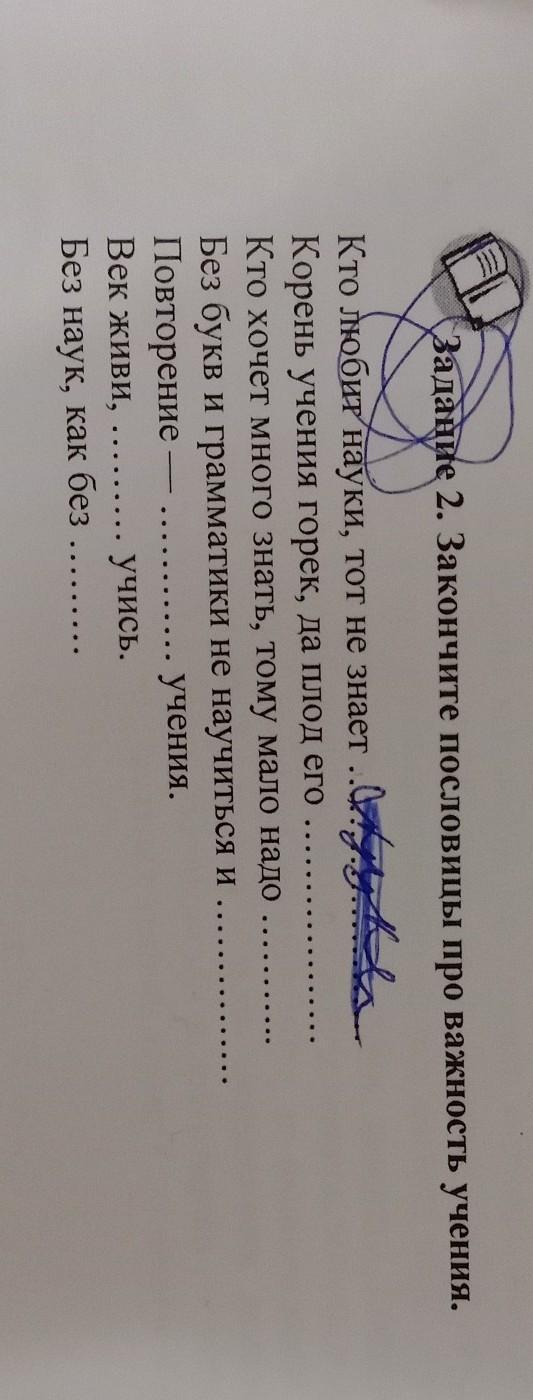 Задание 2. Закончите пословицы про важность учения.
Кто любит науки, тот не знает ...............
Корень учения горек, да плод его .................
Кто хочет много знать, тому мало надо ............
Без букв и грамматики не научиться и ...............
Повторение — ............ учения.
Век живи, ......... учись.
Без наук, как без .........